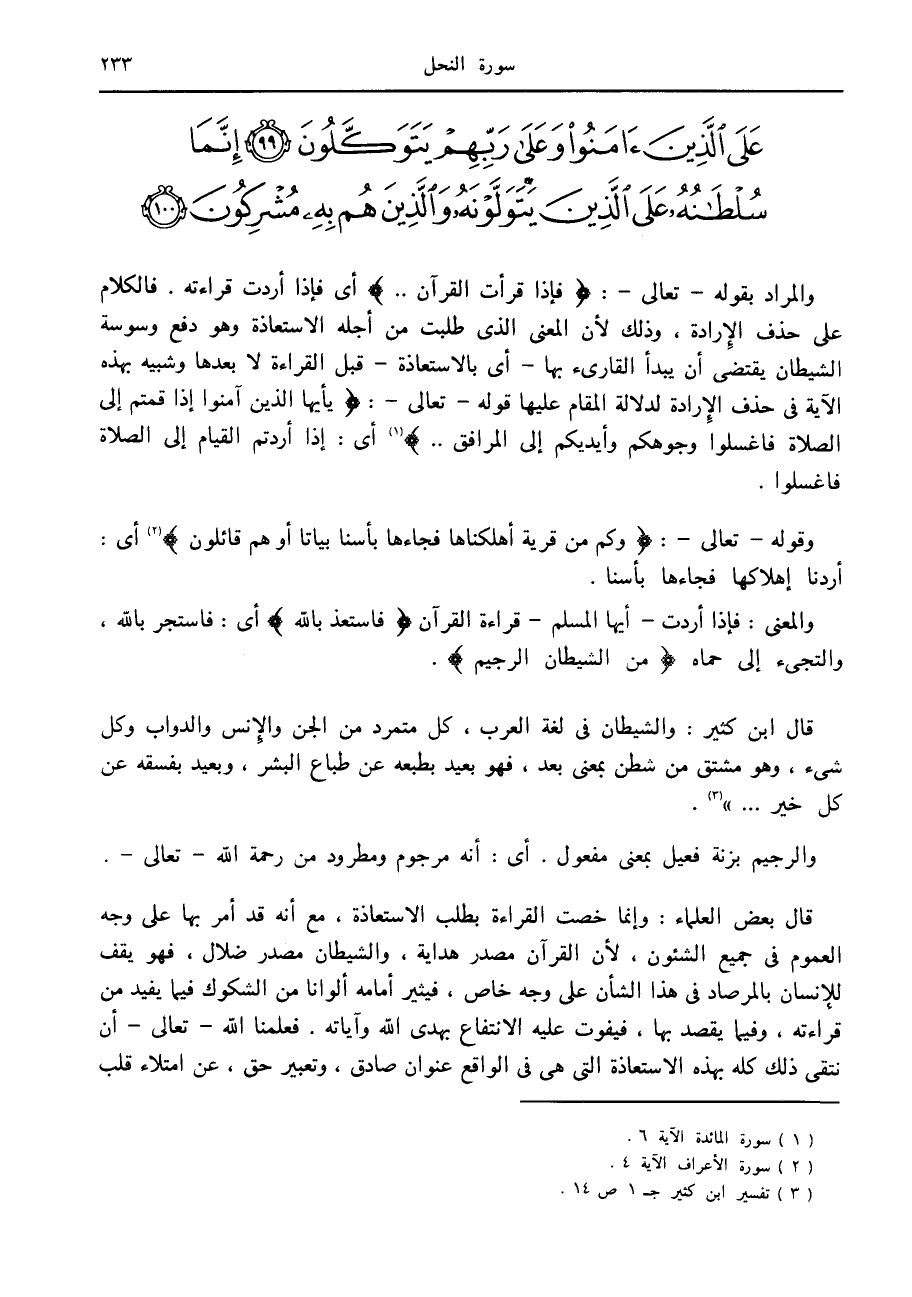 سورة النحل ٢٣٣
عَلَى ٱلَّذِينَ ءَامَنُوا۟ وَعَلَىٰ رَبِّهِمْ يَتَوَكَّلُونَ ﴿٩٩﴾ إِنَّمَا
سُلْطَٰنُهُۥ عَلَى ٱلَّذِينَ يَتَوَلَّوْنَهُۥ وَٱلَّذِينَ هُم بِهِۦ مُشْرِكُونَ ﴿١٠٠﴾
والمراد بقوله – تعالى – : ﴿ فإذا قرأت القرآن .. ﴾ أى فإذا أردت قراءته . فالكلام
على حذف الإِرادة ، وذلك لأن المعنى الذى طلبت من أجله الاستعاذة وهو دفع وسوسة
الشيطان يقتضى أن يبدأ القارىء بها – أى بالاستعاذة – قبل القراءة لا بعدها وشبيه بهذه
الآية فى حذف الإِرادة لدلالة المقام عليها قوله – تعالى – : ﴿ يأيها الذين آمنوا إذا قمتم إلى
الصلاة فاغسلوا وجوهكم وأيديكم إلى المرافق .. ﴾(١) أى : إذا أردتم القيام إلى الصلاة
فاغسلوا .
وقوله – تعالى – : ﴿ وكم من قرية أهلكناها فجاءها بأسنا بياتا أو هم قائلون ﴾(٢) أى :
أردنا إهلاكها فجاءها بأسنا .
والمعنى : فإذا أردت – أيها المسلم – قراءة القرآن ﴿ فاستعذ بالله ﴾ أى : فاستجر بالله ،
والتجىء إلى حماه ﴿ من الشيطان الرجيم ﴾ .
قال ابن كثير : والشيطان فى لغة العرب ، كل متمرد من الجن والإِنس والدواب وكل
شىء ، وهو مشتق من شطن بمعنى بعد ، فهو بعيد بطبعه عن طباع البشر ، وبعيد بفسقه عن
كل خير ... »(٣) .
والرجيم بزنة فعيل بمعنى مفعول . أى : أنه مرجوم ومطرود من رحمة الله – تعالى – .
قال بعض العلماء : وإنما خصت القراءة بطلب الاستعاذة ، مع أنه قد أمر بها على وجه
العموم فى جميع الشئون ، لأن القرآن مصدر هداية ، والشيطان مصدر ضلال ، فهو يقف
للإِنسان بالمرصاد فى هذا الشأن على وجه خاص ، فيثير أمامه ألوانا من الشكوك فيما يفيد من
قراءته ، وفيما يقصد بها ، فيفوت عليه الانتفاع بهدى الله وآياته . فعلمنا الله – تعالى – أن
نتقى ذلك كله بهذه الاستعاذة التى هى فى الواقع عنوان صادق ، وتعبير حق ، عن امتلاء قلب
( ١ ) سورة المائدة الآية ٦ .
( ٢ ) سورة الأعراف الآية ٤ .
( ٣ ) تفسير ابن كثير جـ ١ ص ١٤ .